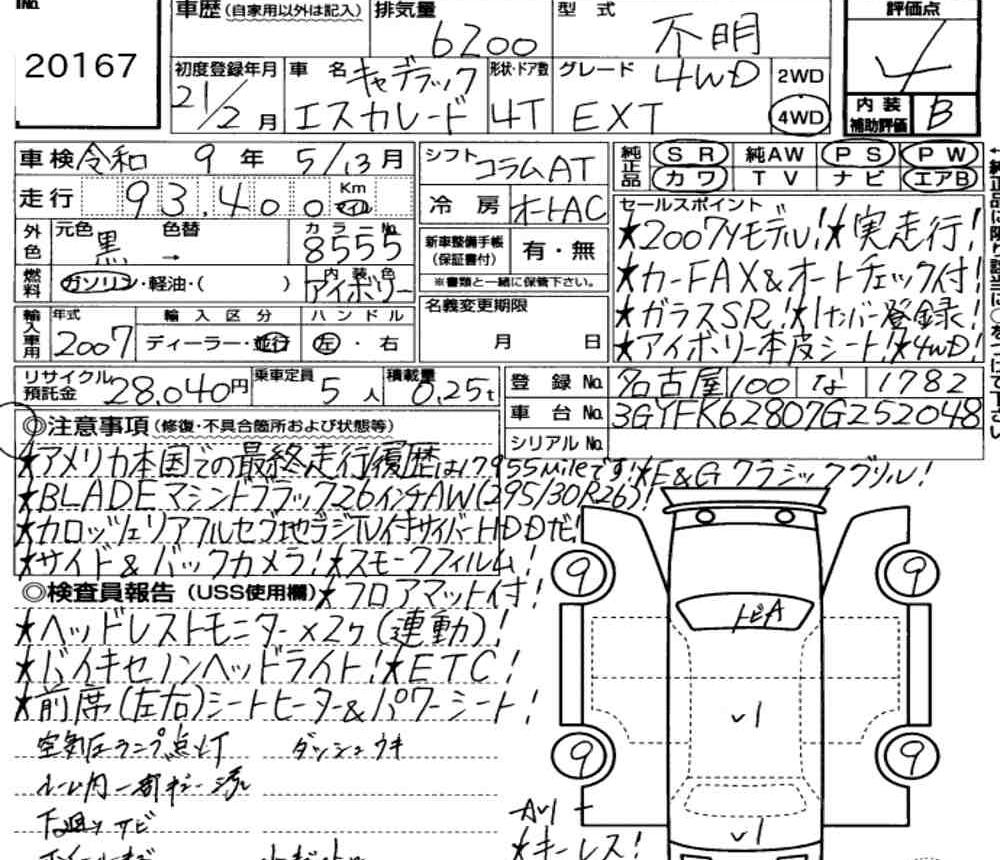 No.
20167
車歴(自家用以外は記入) 排気量 6200 型式 不明
評価点 4
初度登録年月 21/2月 車名 キャデラック エスカレード 形状・ドア数 4T グレード 4WD EXT 2WD 4WD
内装補助評価 B
車検 令和 9年 5/13月
シフト コラムAT
純正品 SR 純AW PS PW
カワ TV ナビ エアB
走行 93,400 Km マイル
冷房 オートAC
セールスポイント
外色 元色 黒 色替 → カラーNo. 8555
新車整備手帳(保証書付) 有・無
※書類と一緒に保管下さい。
★2007yモデル!★実走行!
★カーFAX&オートチェック付!
★ガラスSR!★1ナンバー登録!
★アイボリー本皮シート!★4WD!
燃料 ガソリン・軽油・( ) 内装色 アイボリー
名義変更期限 月 日
輸入車用 年式 2007 輸入区分 ディーラー・並行 ハンドル 左・右
リサイクル預託金 28,040円 乗車定員 5人 積載量 0.25t
登録No. 名古屋 100 な 1782
車台No. 3GYFK62807G252048
シリアルNo.
◎注意事項(修復・不具合箇所および状態等)
★アメリカ本国での最終走行履歴は17955mileです!★E&Gクラシックグリル!
★BLADEマシンドブラック26インチAW(295/30R26)!
★カロッツェリアフルセグ地デジTV付サイバーHDDナビ!
★サイド&バックカメラ!★スモークフィルム!
◎検査員報告(USS使用欄)★フロアマット付!
★ヘッドレストモニター×2ヶ(連動)!
★バイキセノンヘッドライト!★ETC!
★前席(左右)シートヒーター&パワーシート!
空気圧ランプ点灯 ダッシュウキ
ルーム内一部
下廻りサビ
9
9
9
9
トビA
v1
v1
AV1
★キーレス!